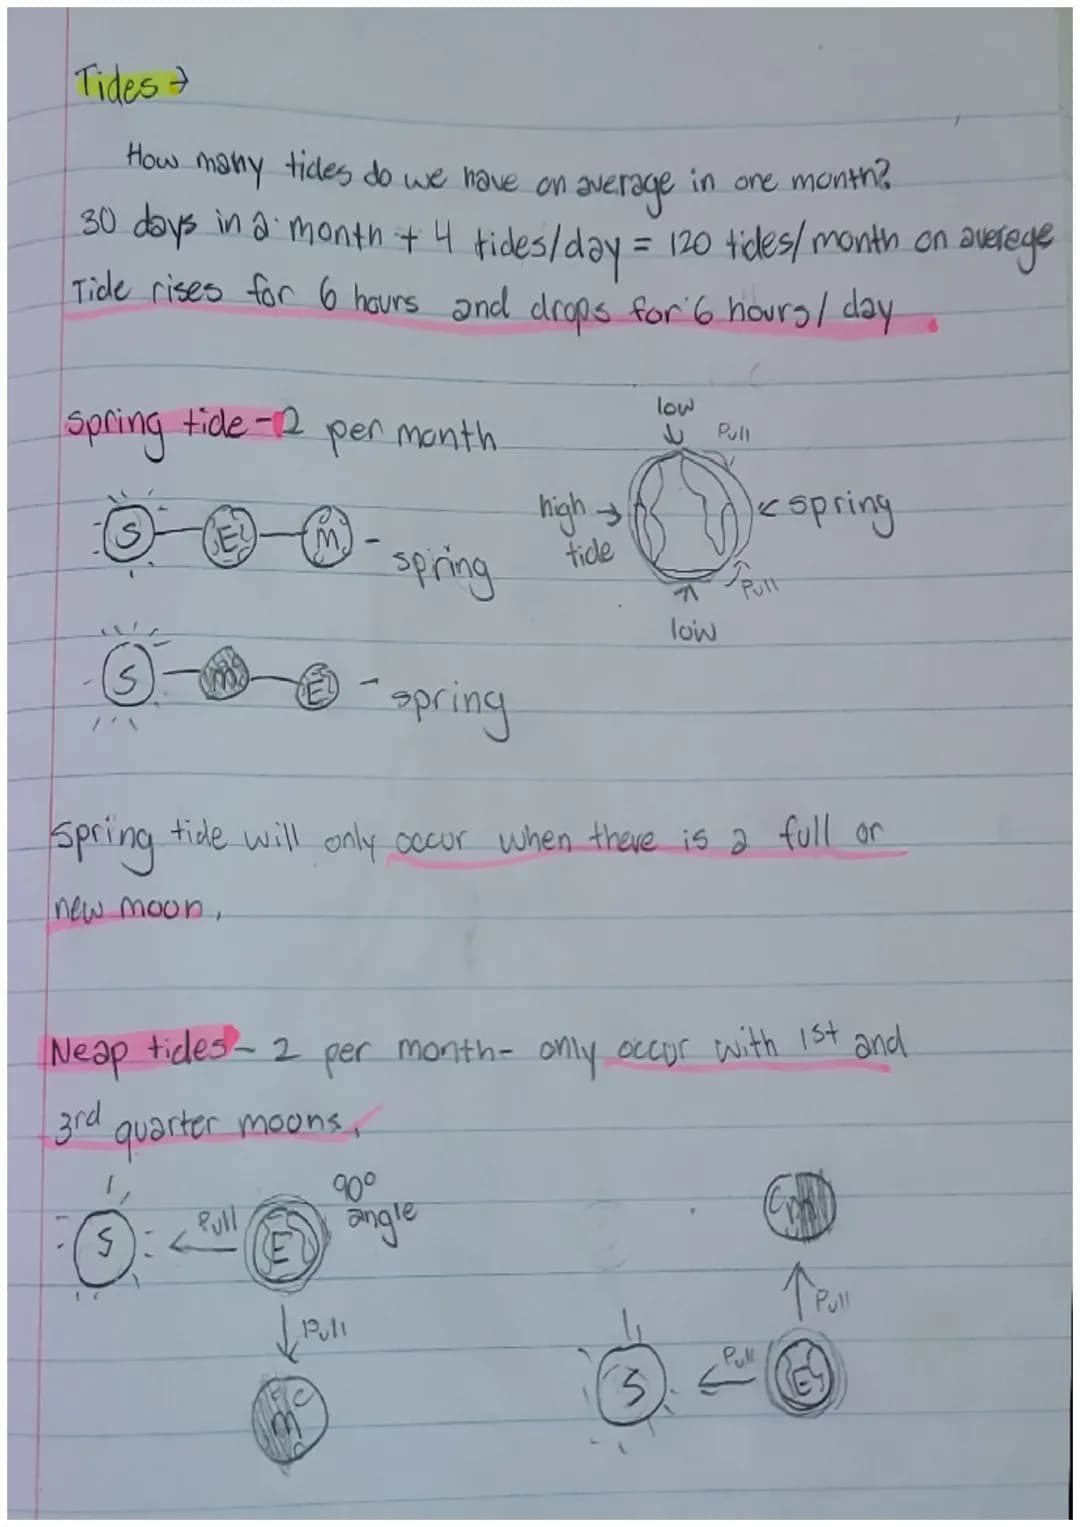 Tides →
How many tides do we have on average in one month?
30 days in a month + 4 tides/day = 120 tides/month on averege
Tide rises for 6 hours and drops for 6 hours/day
Spring tide - 2 per month
low
Pull
high →
tide
< spring
Pull
low
S E M - spring
S M E - spring
Spring tide will only occur when there is a full or
new moon.
Neap tides - 2 per month - only occur with 1st and
3rd quarter moons.
90°
angle
S Pull E
Pull
M
M
Pull
S Pull E